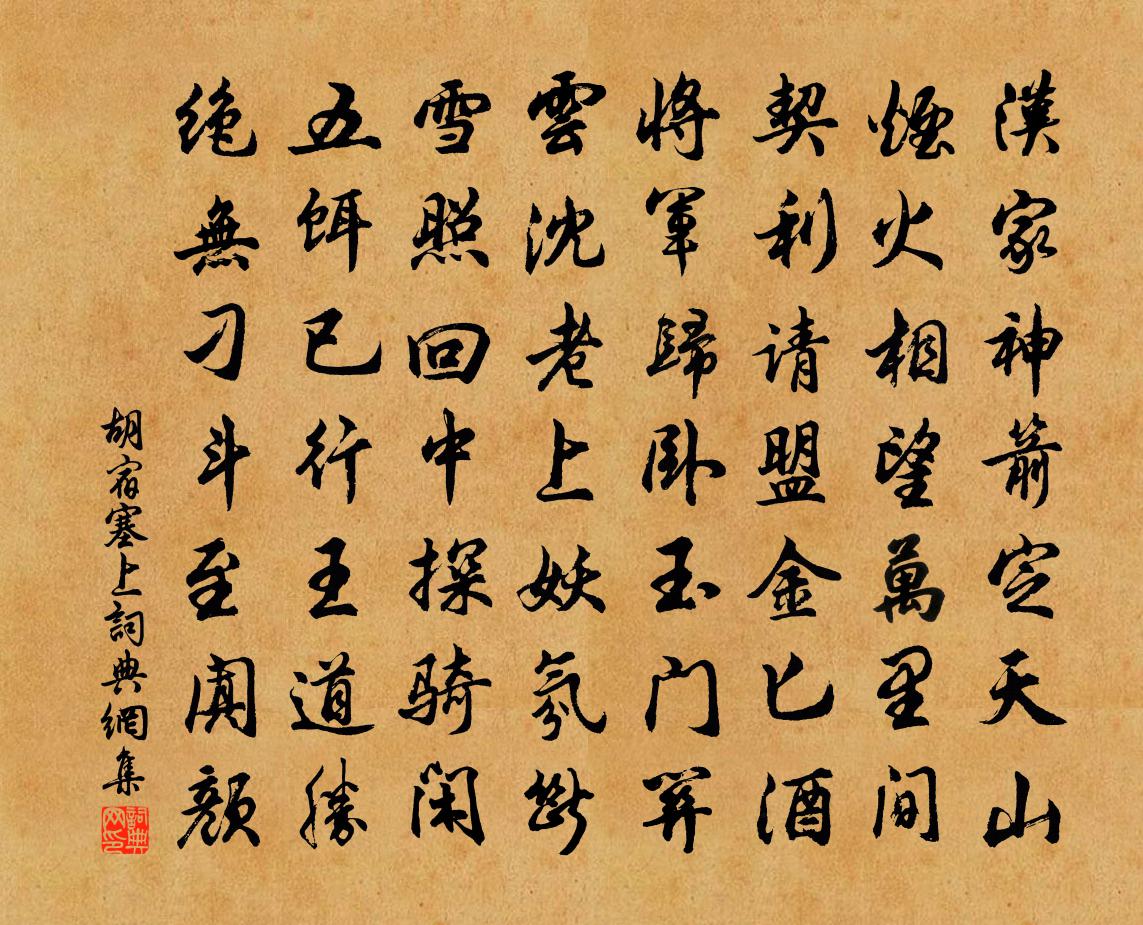 漢家神箭定天山
煙火相望萬里間
契利請盟金匕酒
將軍歸卧玉門關
雲沈老上妖氛斷
雪照回中探騎閑
五餌已行王道勝
絶無刁斗至闐顏
胡宿塞上詞典網集
詞典网印